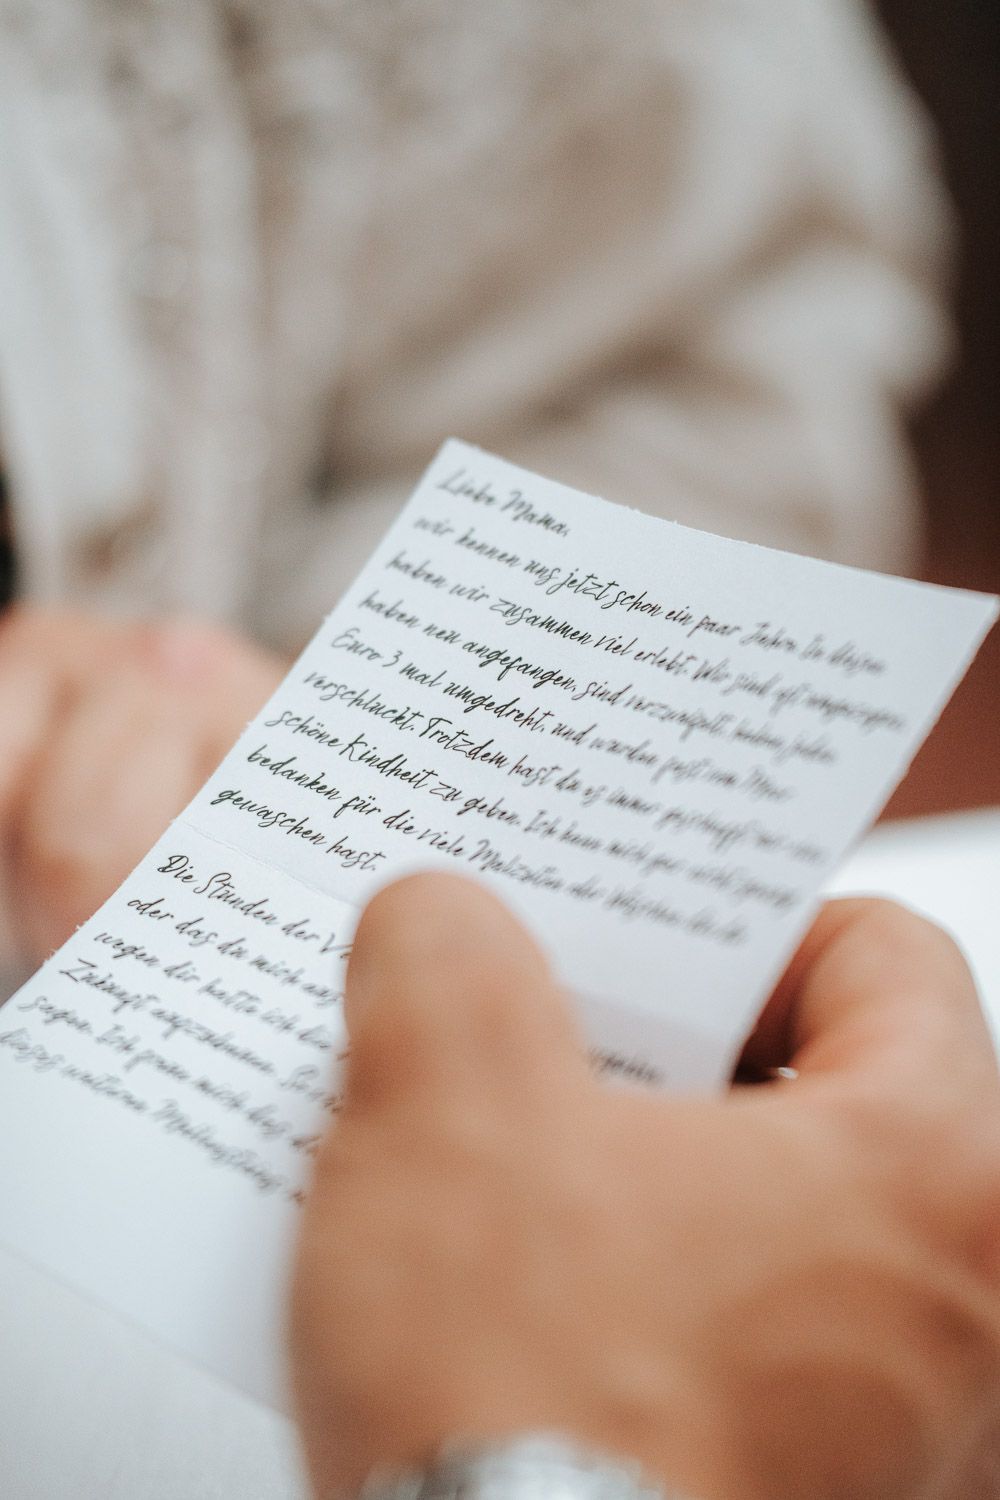 Liebe Mama,
wir kennen uns jetzt schon ein paar Jahre. In diesen
haben wir zusammen viel erlebt. Wir sind oft umgezogen,
haben neu angefangen, sind verzweifelt, haben jeden
Euro 3 mal umgedreht, und wurden fast vom Meer
verschluckt. Trotzdem hast du es immer geschafft mir eine
schöne Kindheit zu geben. Ich kann mich gar nicht genug
bedanken für die viele Malzeiten oder Wäschen die du
gewaschen hast.
Die Stunden der
oder das du mich aus
wegen dir hatte ich die
Zukunft
sagen. Ich freue mich das
dieses weiteren Meilenstein